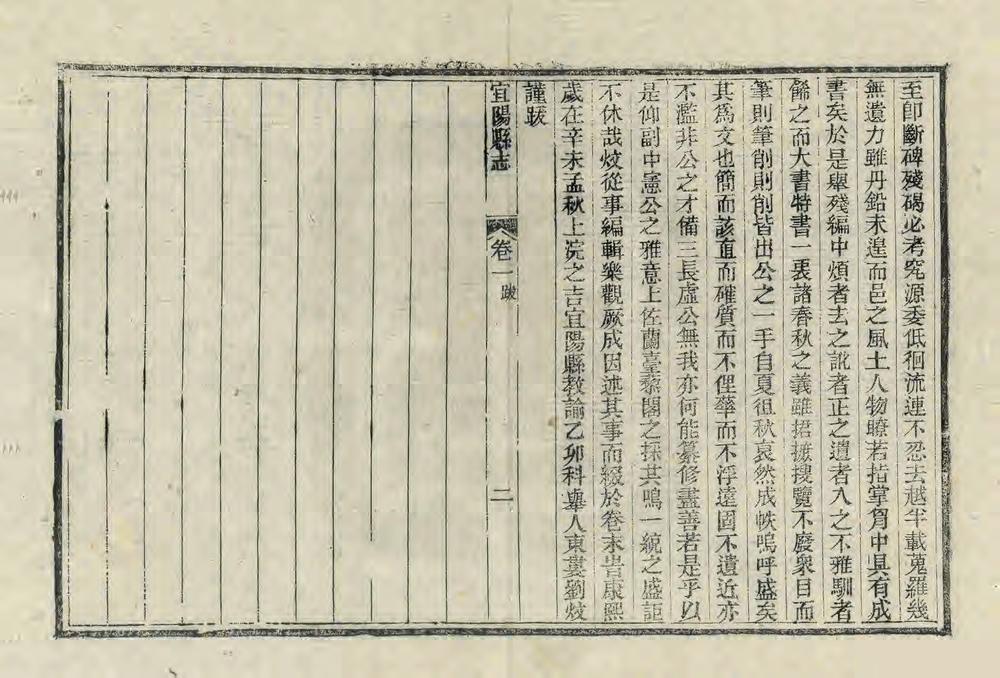 至卽斷碑殘碣必考究源委低徊流連不忍去越半載蒐羅幾
無遺力雖丹鉛未遑而邑之風土人物瞭若指掌胷中具有成
書矣於是舉殘編中煩者去之訛者正之遺者入之不雅馴者
餙之而大書特書一衷諸春秋之義雖捃摭搜覽不廢衆目而
筆則筆削則削皆出公之一手自夏徂秋裒然成帙嗚呼盛矣
其爲文也簡而該直而確質而不俚華而不浮遠固不遺近亦
不濫非公之才備三長虛公無我亦何能纂修盡善若是乎以
是仰副中憲公之雅意上佐蘭臺藜閣之採共鳴一統之盛詎
不休哉炆從事編輯樂觀厥成因述其事而綴於卷末旹康熙
歲在辛未孟秋上浣之吉宜陽縣教諭乙卯科舉人東婁劉炆
謹跋
宜陽縣志 卷一 跋 二